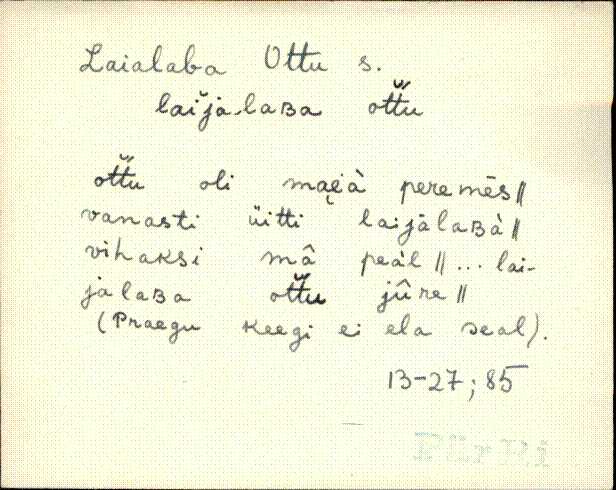 Laialaba Ottu s.
laĭja-laʙa ot̆t̆u
ot̆t̆u oli mae̯i̯à peremēs ||
vanasti üitti laijàlaʙà ||
vihaksi mâ peàl || ... lai-
jalaʙa ot̆t̆u jûre ||
(Praegu keegi ei ela seal).
13-27; 85